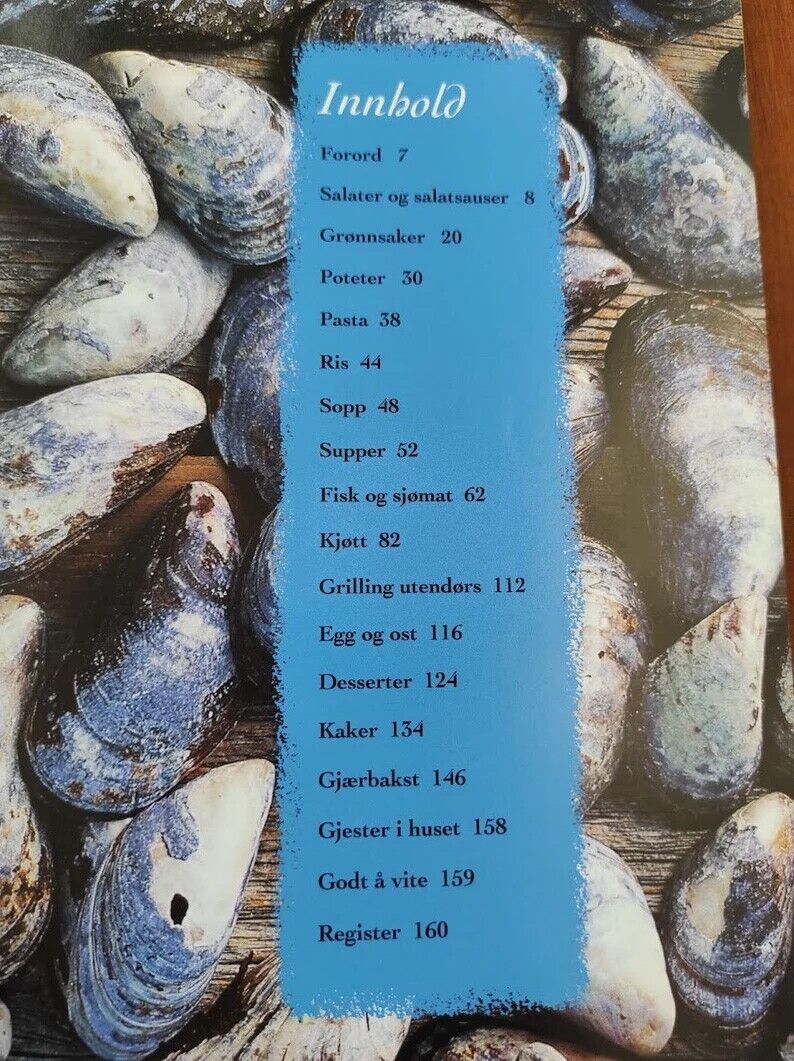 Innhold
Forord 7
Salater og salatsauser 8
Grønnsaker 20
Poteter 30
Pasta 38
Ris 44
Sopp 48
Supper 52
Fisk og sjømat 62
Kjøtt 82
Grilling utendørs 112
Egg og ost 116
Desserter 124
Kaker 134
Gjærbakst 146
Gjester i huset 158
Godt å vite 159
Register 160